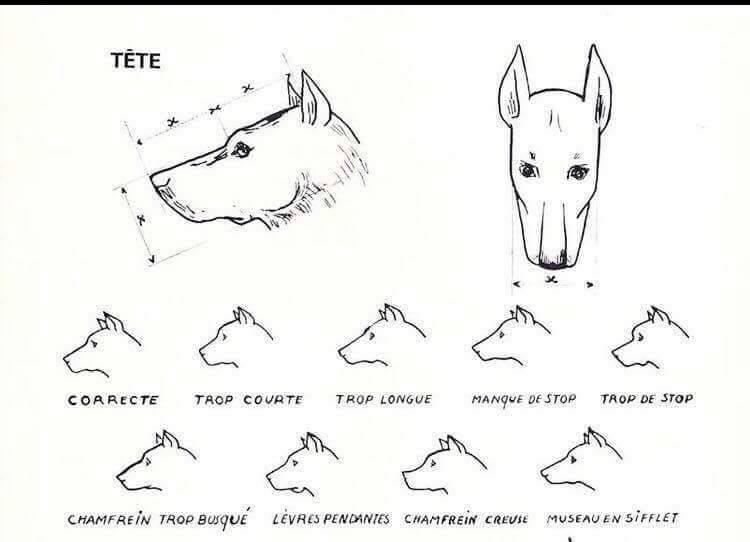 TÊTE
x x x
x
x
CORRECTE TROP COURTE TROP LONGUE MANQUE DE STOP TROP DE STOP
CHAMFREIN TROP BUSQUÉ LÈVRES PENDANTES CHAMFREIN CREUSE MUSEAU EN SIFFLET